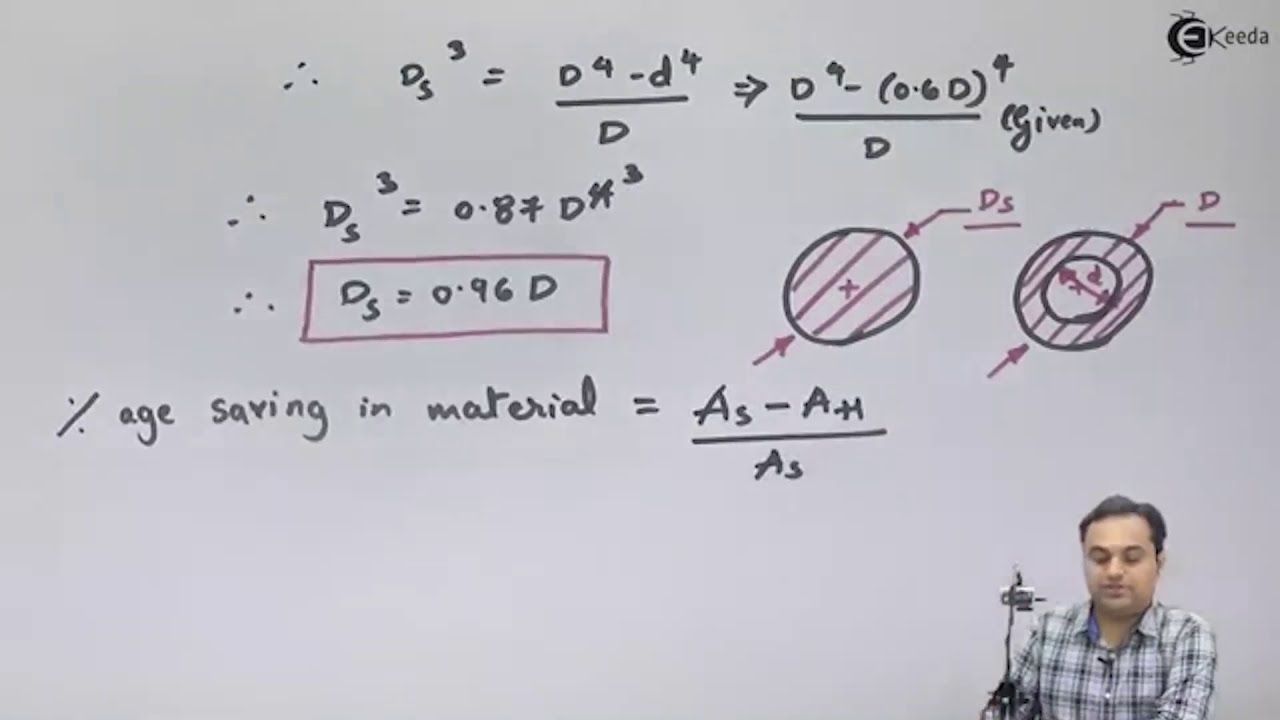 EKeeda
∴ Ds³ = D⁴ - d⁴ / D ⇒ D⁴ - (0.6D)⁴ / D (Given)
∴ Ds³ = 0.87 D⁴ ³
Ds
D
d
∴ Ds = 0.96 D
% age saving in material = As - AH / As